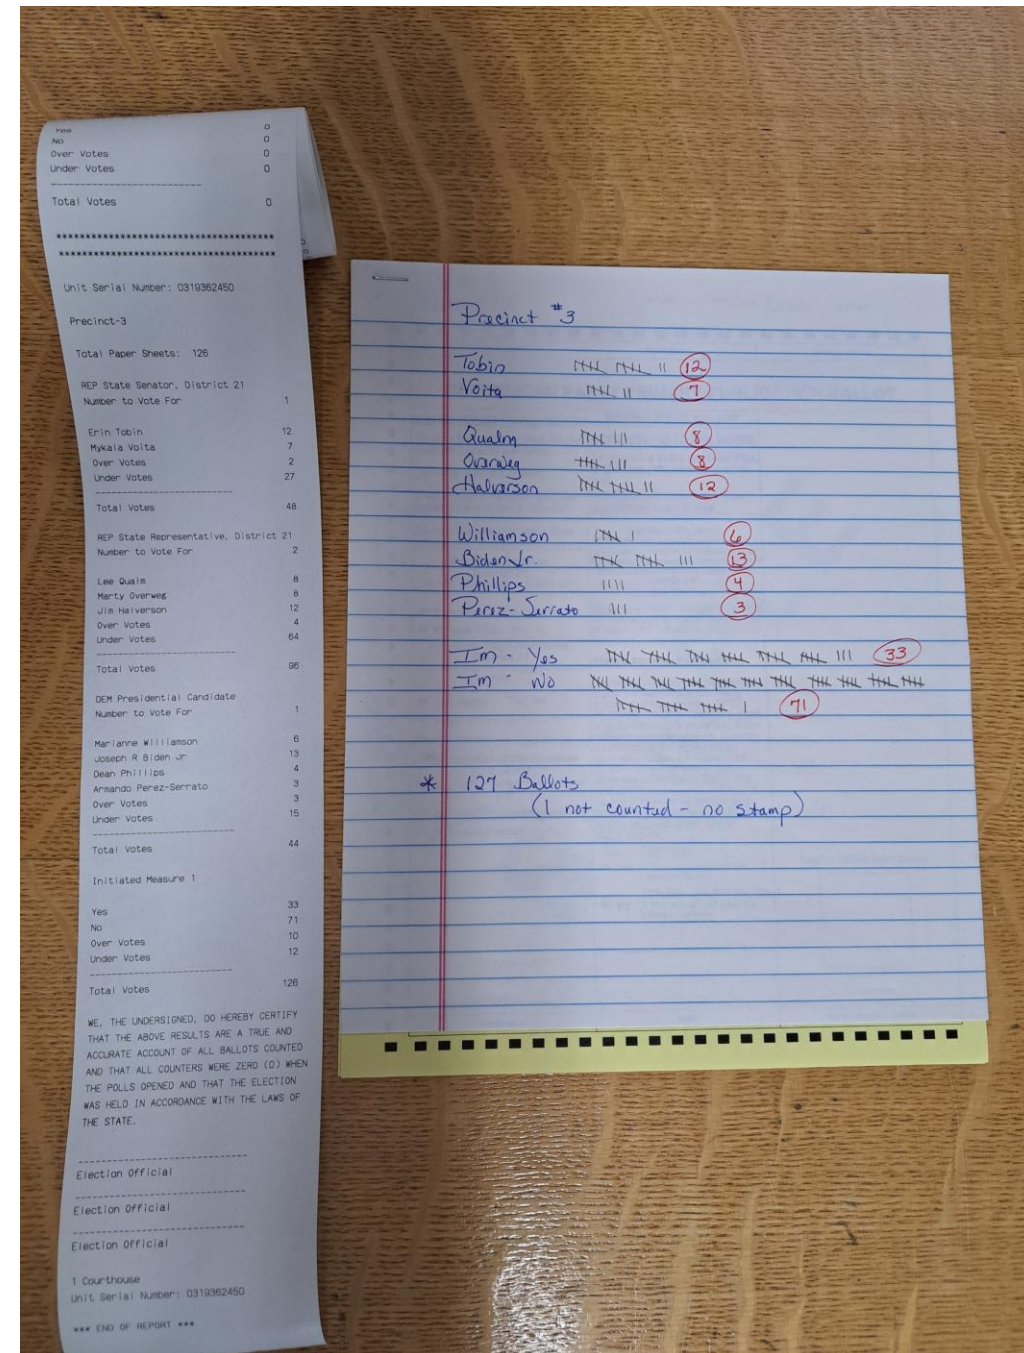 Yes 0
No 0
Over Votes 0
Under Votes 0
Total Votes 0
****************************************
****************************************
Unit Serial Number: 0319362450
Precinct-3
Total Paper Sheets: 126
REP State Senator, District 21
Number to Vote For 1
Erin Tobin 12
Mykala Voita 7
Over Votes 2
Under Votes 27
Total Votes 48
REP State Representative, District 21
Number to Vote For 2
Lee Qualm 8
Marty Overweg 8
Jim Halverson 12
Over Votes 4
Under Votes 64
Total Votes 96
DEM Presidential Candidate
Number to Vote For 1
Marianne Williamson 6
Joseph R Biden Jr 13
Dean Phillips 4
Armando Perez-Serrato 3
Over Votes 3
Under Votes 15
Total Votes 44
Initiated Measure 1
Yes 33
No 71
Over Votes 10
Under Votes 12
Total Votes 126
WE, THE UNDERSIGNED, DO HEREBY CERTIFY
THAT THE ABOVE RESULTS ARE A TRUE AND
ACCURATE ACCOUNT OF ALL BALLOTS COUNTED
AND THAT ALL COUNTERS WERE ZERO (0) WHEN
THE POLLS OPENED AND THAT THE ELECTION
WAS HELD IN ACCORDANCE WITH THE LAWS OF
THE STATE.
Election Official
Election Official
Election Official
1 Courthouse
Unit Serial Number: 0319362450
*** END OF REPORT ***
Precinct #3
Tobin 12
Voita 7
Qualm 8
Overweg 8
Halverson 12
Williamson 6
Biden Jr. 13
Phillips 4
Perez-Serrato 3
Im - Yes 33
Im - No
71
* 127 Ballots
(1 not counted - no stamp)